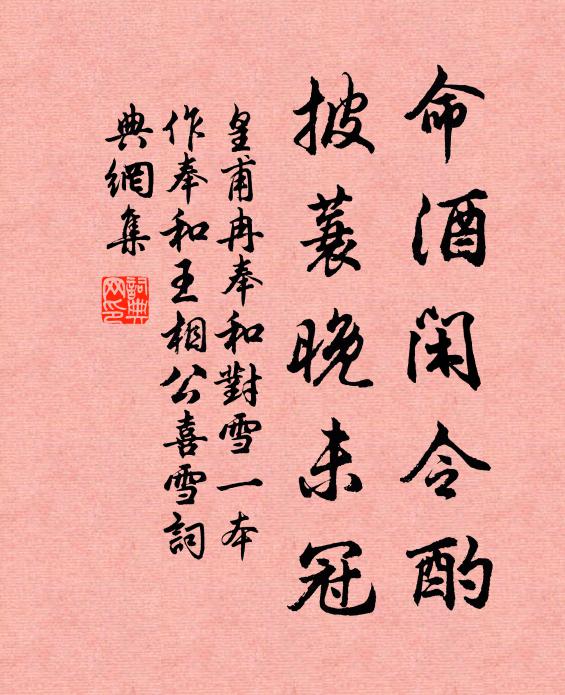 命酒閑令酌
披蓑晚未冠
皇甫冉奉和對雪一本
作奉和王相公喜雪詞
典網集
詞典網印